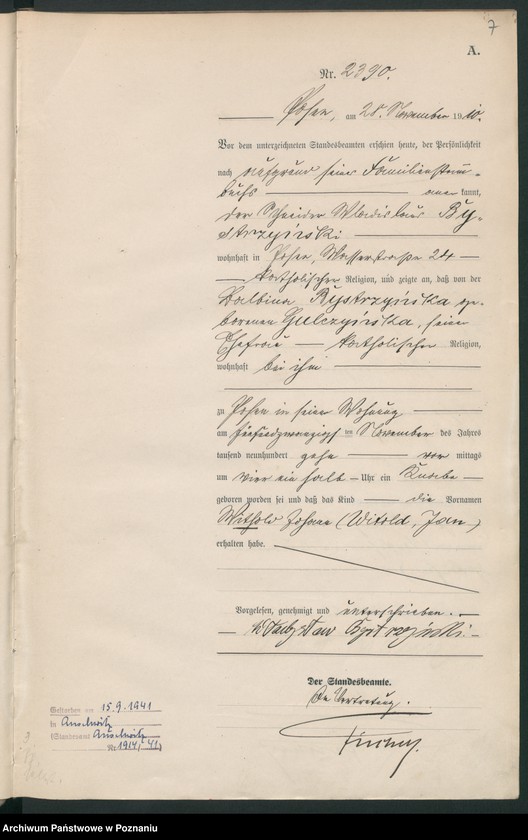 7
A.
Nr. 2390.
Posen, am 28. November 1910.
Vor dem unterzeichneten Standesbeamten erschien heute, der Persönlichkeit
nach aufgrund seines Familienstamm-
buchs kannt,
der Schneider Wladislaus By-
strzyński
wohnhaft in Posen, Wasserstraße 24
katholischer Religion, und zeigte an, daß von der
Balbina Bystrzyńska ge-
borenen Gulczyńska, seiner
Ehefrau katholischer Religion,
wohnhaft bei ihm
zu Posen in seiner Wohnung
am fünfundzwanzigsten November des Jahres
tausend neunhundert zehn vor mittags
um vier ein halb Uhr ein Knabe
geboren worden sei und daß das Kind die Vornamen
Withold Johann (Witold, Jan)
erhalten habe.
Vorgelesen, genehmigt und unterschrieben.
Władysław Bystrzyński.
Der Standesbeamte.
In Vertretung.
Gestorben am 15.9.1941
in Auschwitz
(Standesamt Auschwitz
Nr. 1914/41)
Archiwum Państwowe w Poznaniu